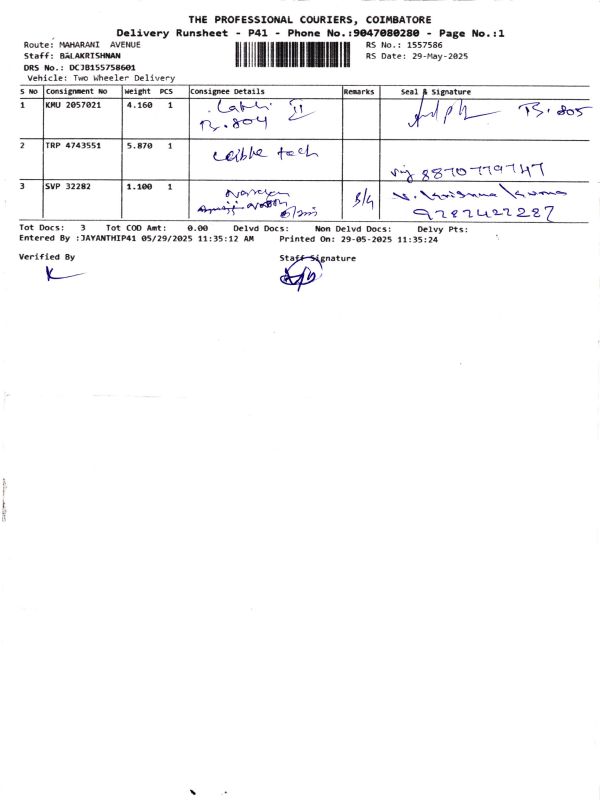 THE PROFESSIONAL COURIERS, COIMBATORE
Delivery Runsheet - P41 - Phone No.:9047080280 - Page No.:1
Route: MAHARANI AVENUE
RS No.: 1557586
Staff: BALAKRISHNAN
RS Date: 29-May-2025
DRS No.: DCJB155758601
Vehicle: Two Wheeler Delivery
S No Consignment No Weight PCS Consignee Details Remarks Seal & Signature
1 KMU 2057021 4.160 1 II
B.804 B.805
2 TRP 4743551 5.870 1 tech
8870779747
3 SVP 32282 1.100 1 B/G V. Krishna Kumar
9787427287
Tot Docs: 3 Tot COD Amt: 0.00 Delvd Docs: Non Delvd Docs: Delvy Pts:
Entered By :JAYANTHIP41 05/29/2025 11:35:12 AM Printed On: 29-05-2025 11:35:24
Verified By Staff Signature